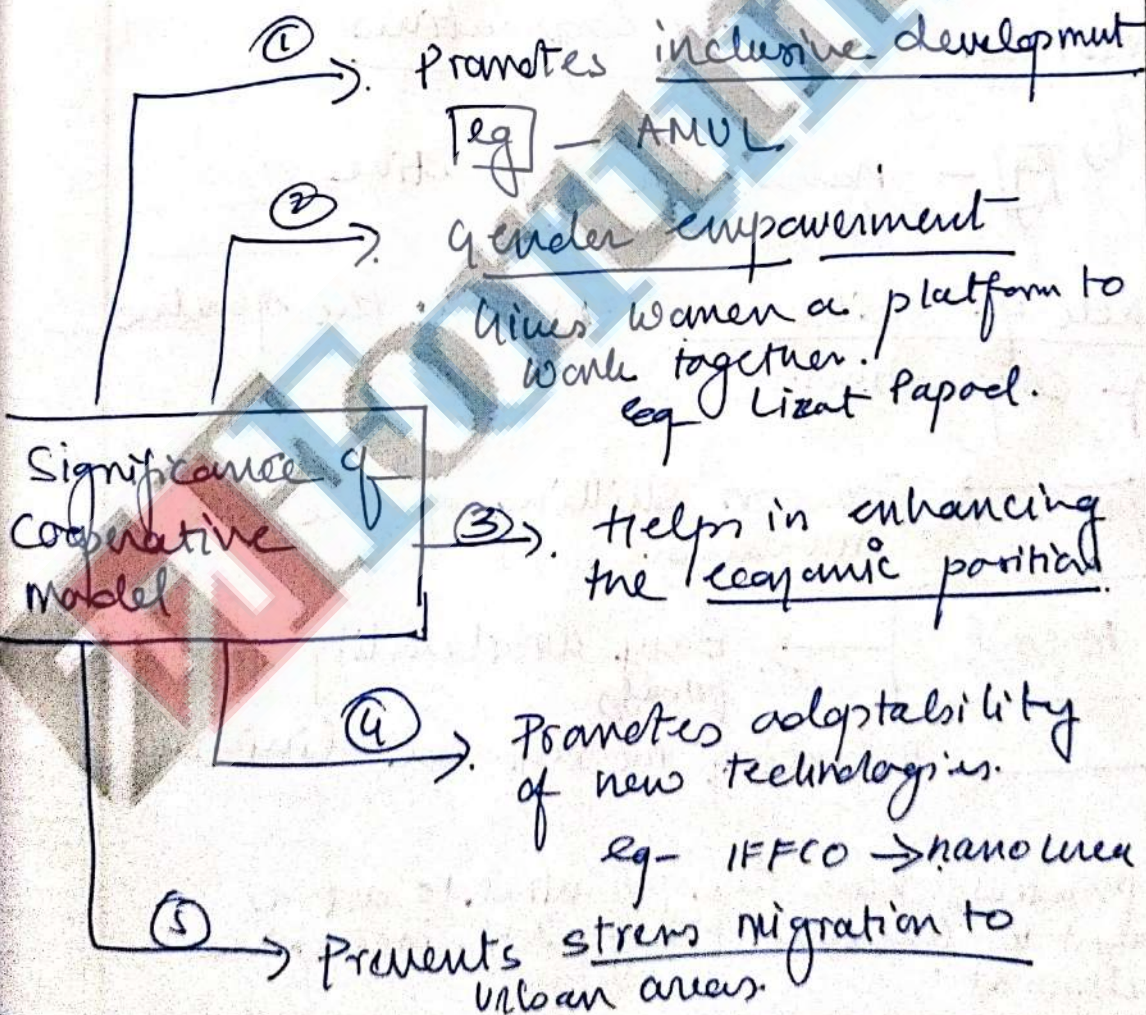 ① Promotes inclusive development
eg — AMUL.
② Gender empowerment
Gives women a platform to
work together.
eg Lizzat Papad.
Significance of
cooperative
model
③ Helps in enhancing
the economic position
④ Promotes adoptability
of new technologies.
eg- IFFCO → nano urea
⑤ Prevents stress migration to
urban areas.
Forum